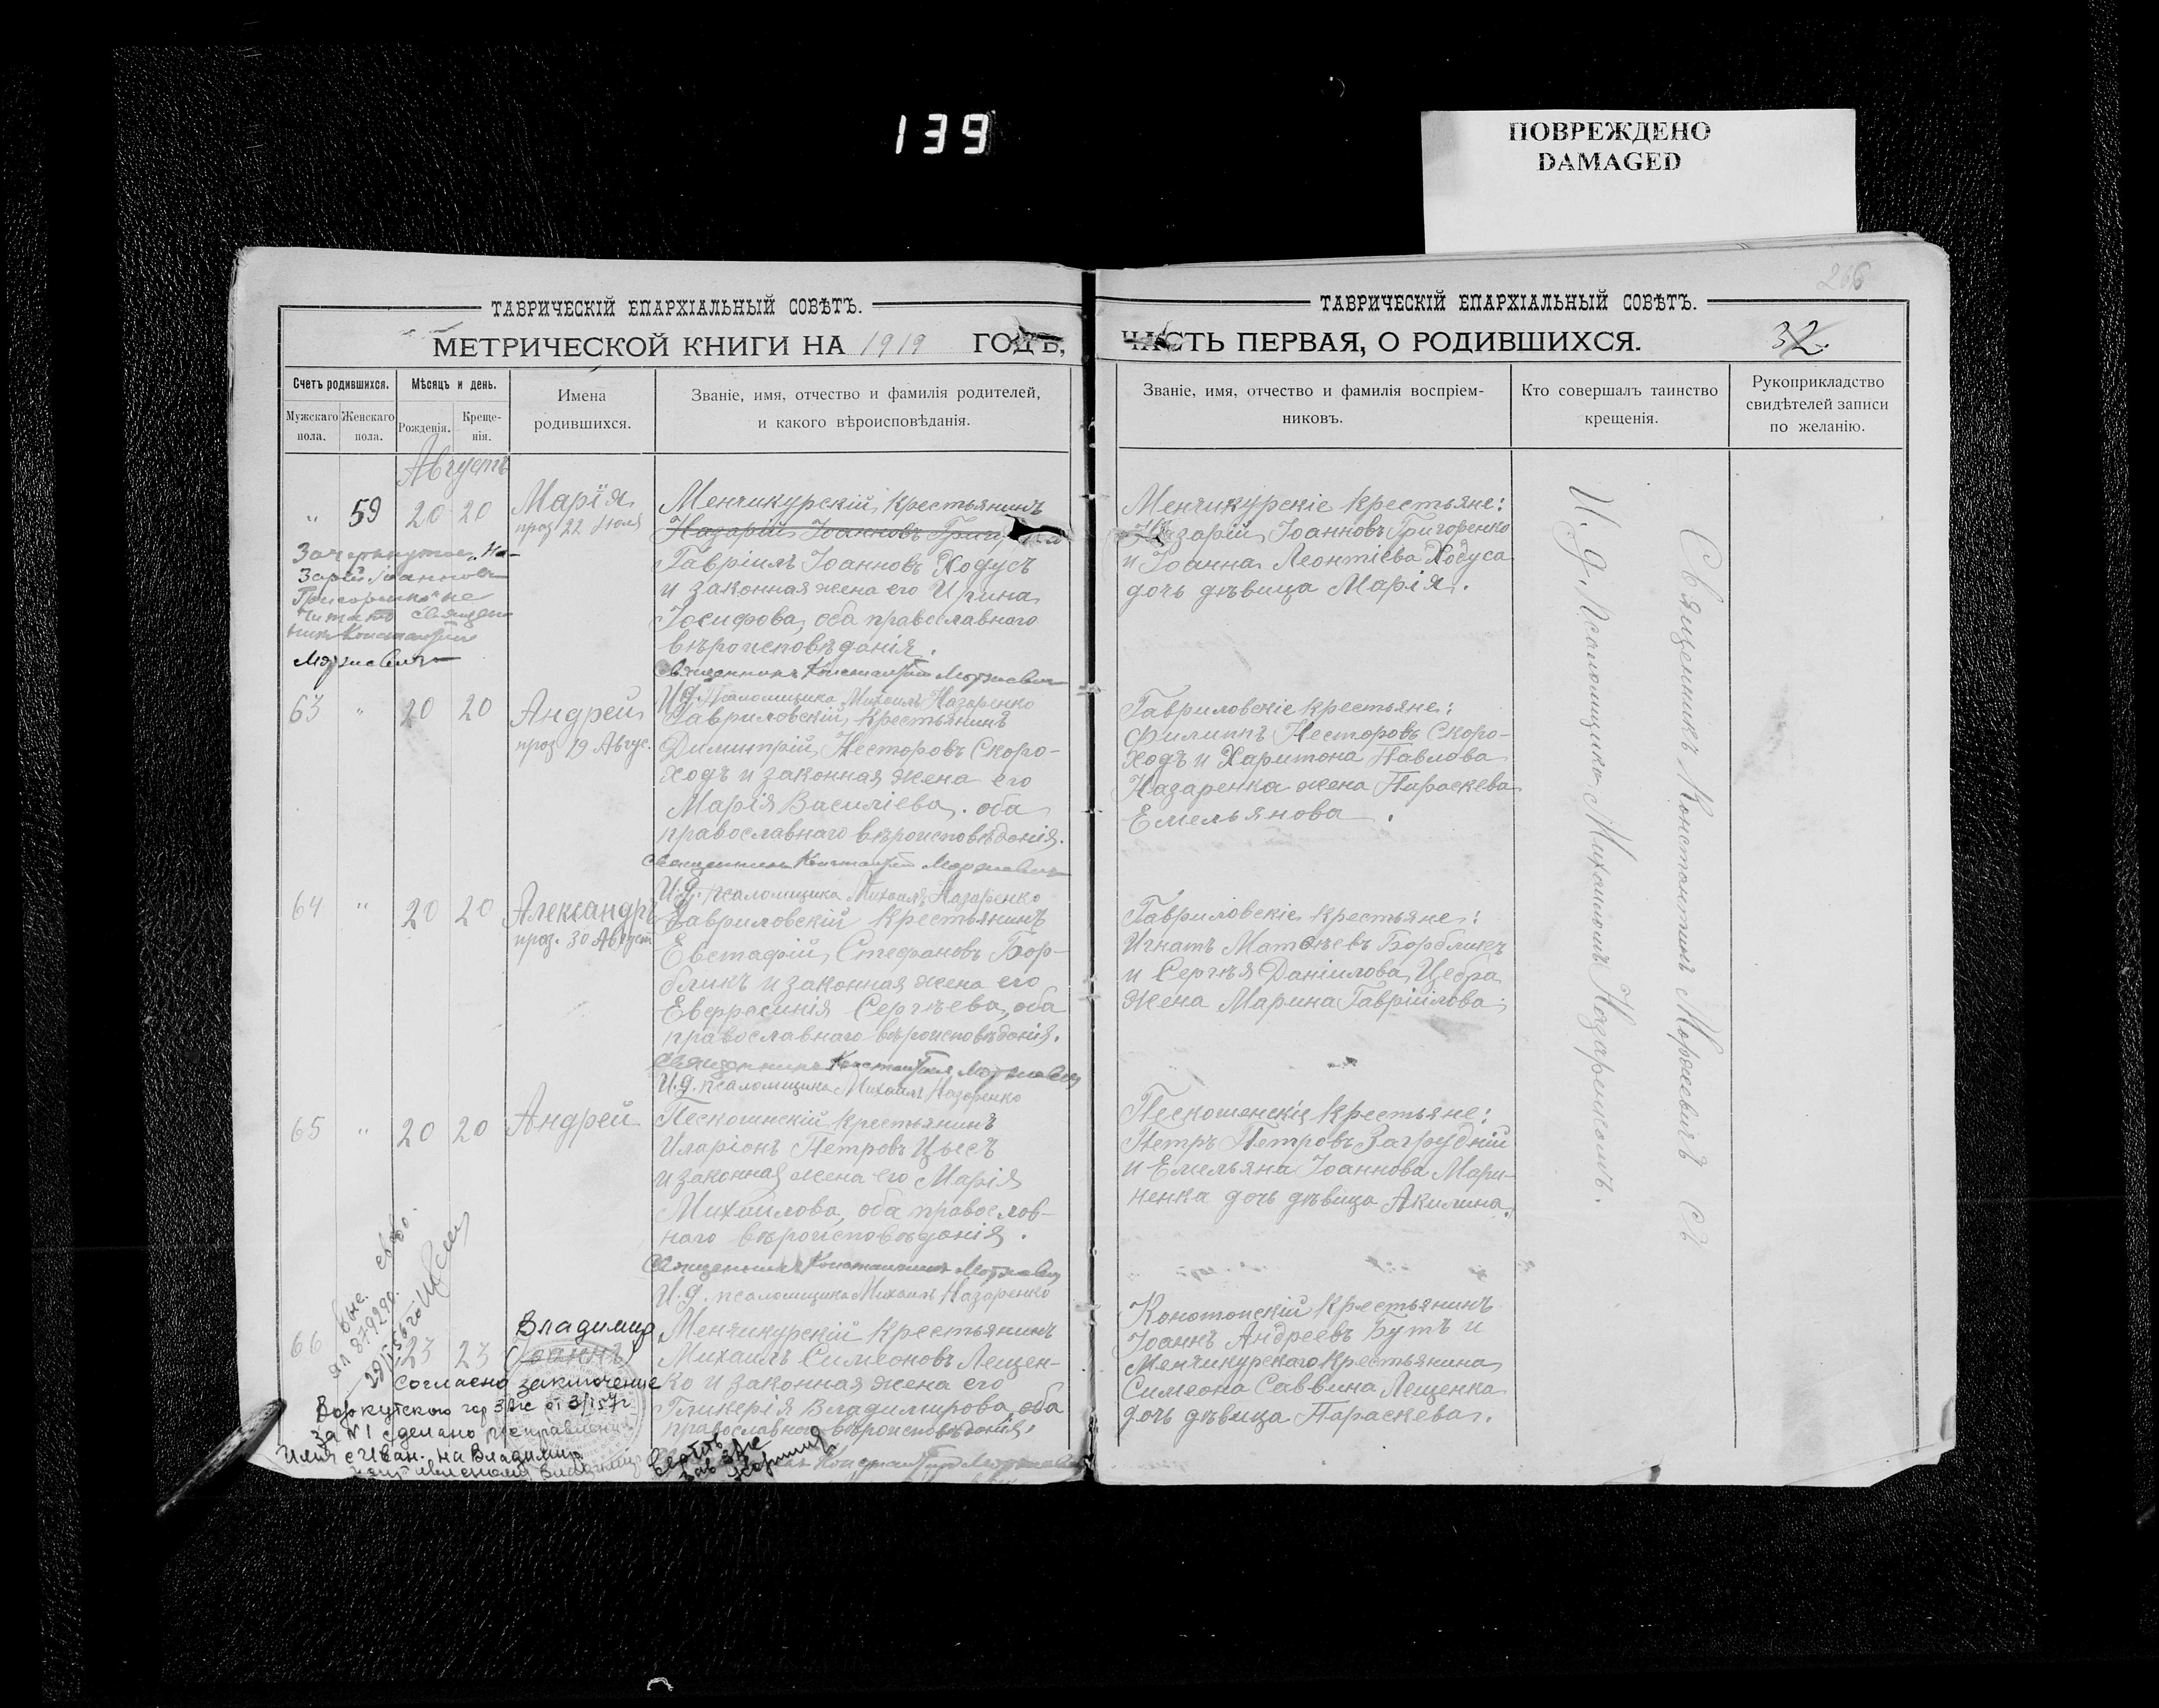 139
ПОВРЕЖДЕНО
DAMAGED
ТАВРИЧЕСКІЙ ЕПАРХІАЛЬНЫЙ СОВѢТЪ.
МЕТРИЧЕСКОЙ КНИГИ НА 1919 ГОДЪ,
Счетъ родившихся.
Мужскаго пола.
Женскаго пола.
Мѣсяцъ и день.
Рожденія.
Креще-
нія.
Имена
родившихся.
Званіе, имя, отчество и фамилія родителей,
и какого вѣроисповѣданія.
Августъ
" 59 20 20
Марія
праз 22 Іюля
Менчикурскій крестьянинъ
Назарій Іоанновъ
Гавріилъ Іоанновъ Ходусъ
и законная жена его Ирина
Іосифова, оба православнаго
вѣроисповѣданія.
Священникъ Константинъ Моржевичъ
И.д. псаломщика Михаилъ Назаренко
Зачеркнутое „На-
зарій Іоанновъ
Григоренко" не
читать Священ
никъ Константинъ
Моржевичъ
63 " 20 20
Андрей
праз 19 Авгус.
Гавриловскій крестьянинъ
Димитрій Несторовъ Скоро-
ходъ и законная жена его
Марія Василіева. оба
православнаго вѣроисповѣданія.
Священникъ Константинъ Моржевичъ
И.д. псаломщика Михаилъ Назаренко
64 " 20 20
Александръ
праз. 30 Август
Гавриловскій крестьянинъ
Евстафій Стефановъ Бор-
бликъ и законная жена его
Евфросинія Сергѣева, оба
православнаго вѣроисповѣданія.
Священникъ Константинъ Моржевичъ
И.д. псаломщика Михаилъ Назаренко
65 " 20 20
Андрей
Пескошинскій крестьянинъ
Иларіонъ Петровъ Цысъ
и законная жена его Марія
Михаилова, оба православ-
наго вѣроисповѣданія.
Священникъ Константинъ Моржевичъ
И.д. псаломщика Михаилъ Назаренко
66 23 23
Владимир
Іоаннъ
Менчикурскій крестьянинъ
Михаилъ Симеоновъ Лещен-
ко и законная жена его
Гликерія Владимирова, оба
православнаго вѣроисповѣданія.
Константинъ Моржевичъ
879290.
согласно заключение
Воркутского гор ЗАГС от 3/I 57 г
за №1 сделано исправление
имя с Иван. на Владимир
ТАВРИЧЕСКІЙ ЕПАРХІАЛЬНЫЙ СОВѢТЪ.
266
ЧАСТЬ ПЕРВАЯ, О РОДИВШИХСЯ.
32.
Званіе, имя, отчество и фамилія воспріем-
никовъ.
Кто совершалъ таинство
крещенія.
Рукоприкладство
свидѣтелей записи
по желанію.
Менчикурскіе крестьяне:
Назарій Іоанновъ Григоренко
и Іоанна Леонтіева Ходуса
дочь дѣвица Марія.
Гавриловскіе крестьяне:
Филиппъ Несторовъ Скоро-
ходъ и Харитона Павлова
Назаренка жена Параскева
Емельянова.
Гавриловскіе крестьяне:
Игнатъ Матѳѣевъ Борбликъ
и Сергѣя Даніилова Цебра
жена Марина Гавріилова.
Пескошенскіе крестьяне:
Петръ Петровъ Загрудній
и Емельяна Іоаннова Мари-
ненка дочь дѣвица Акилина.
Конотопскій крестьянинъ
Іоаннъ Андреевъ Бутъ и
Менчикурскаго крестьянина
Симеона Саввина Лещенка
дочь дѣвица Параскева.
Священникъ Константинъ Моржевичъ съ
И. д. Псаломщика Михаиломъ Назаренкомъ.